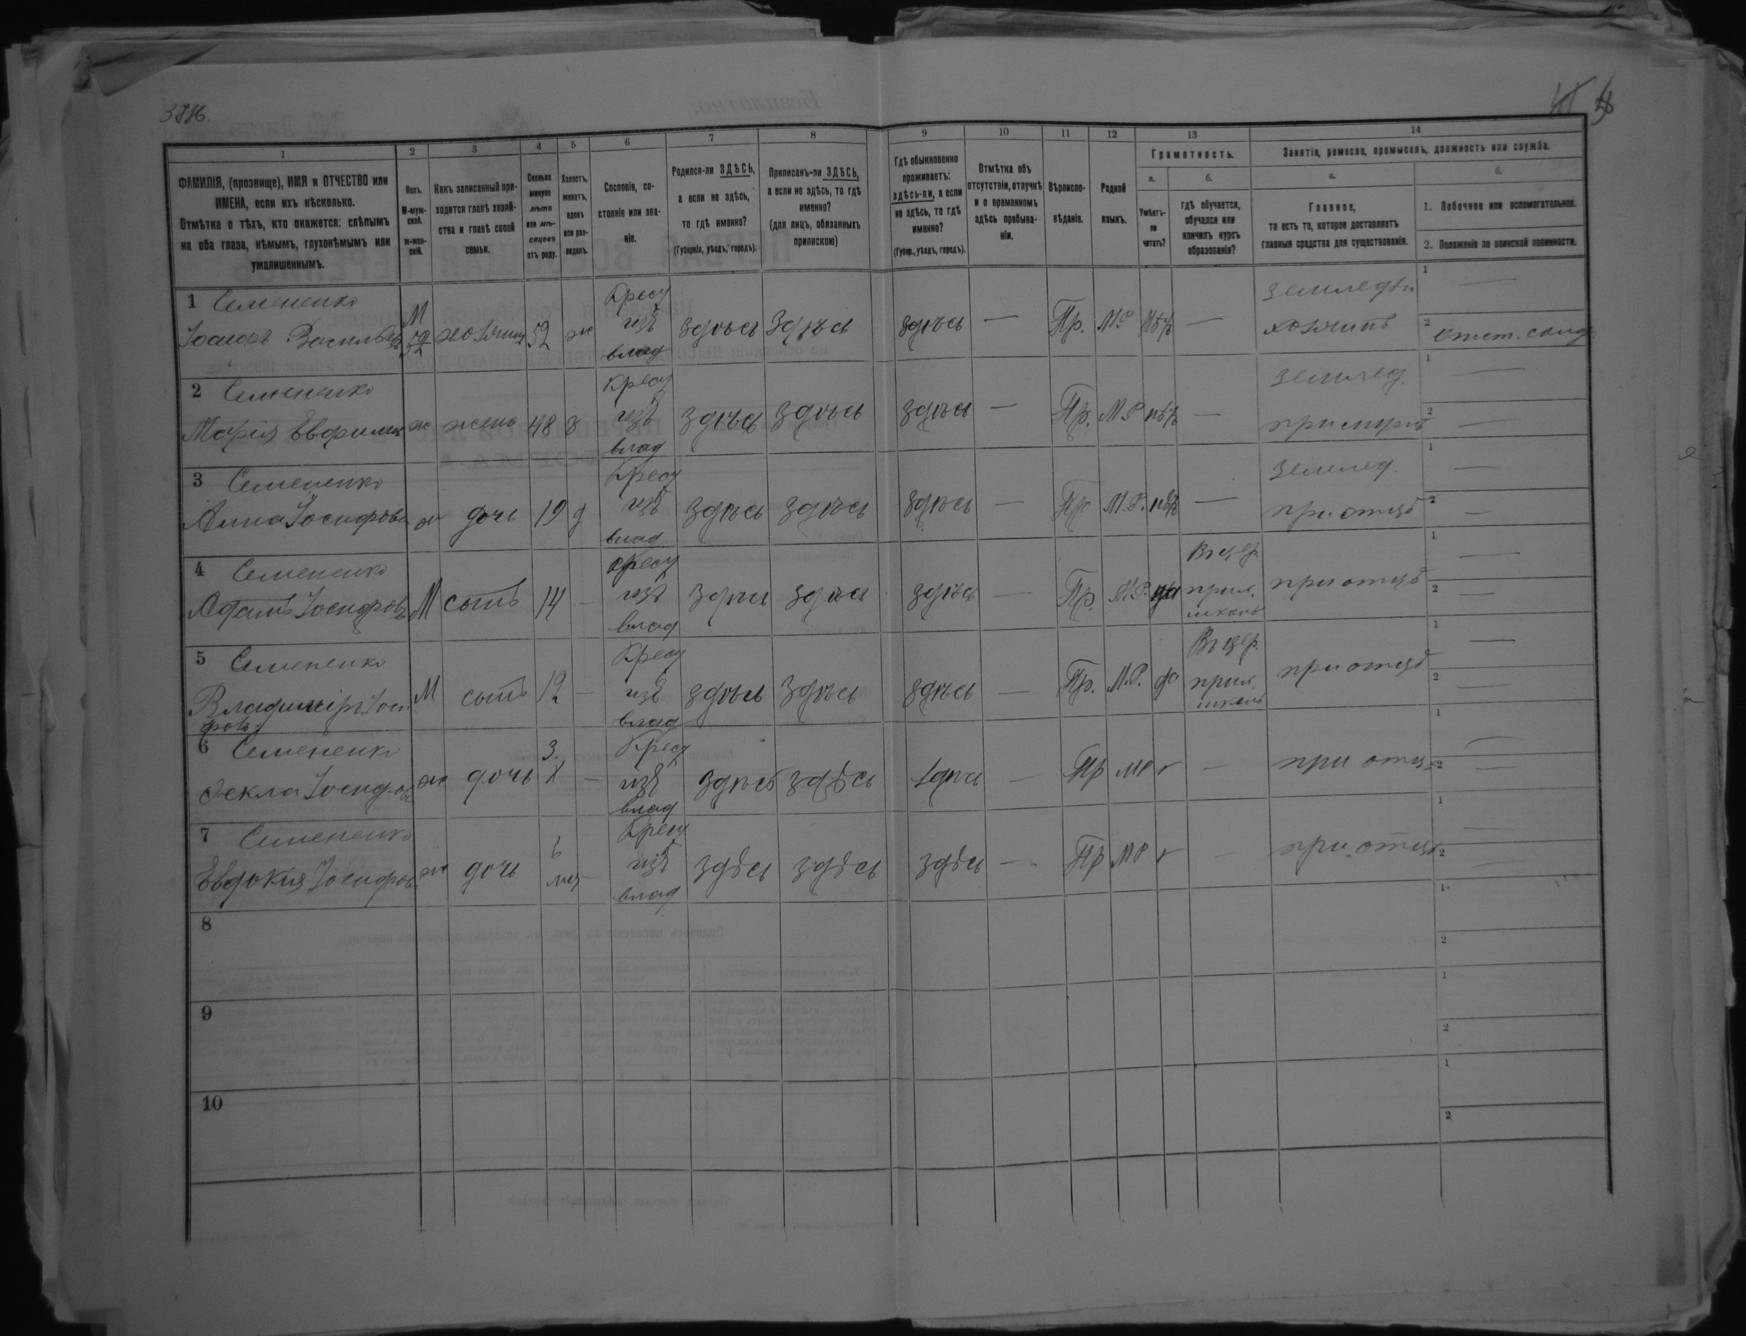 1
2
3
4
5
6
7
8
9
10
11
12
13
14
ФАМИЛІЯ, (прозвище), ИМЯ и ОТЧЕСТВО или
ИМЕНА, если ихъ нѣсколько.
Отмѣтка о тѣхъ, кто окажется: слѣпымъ
на оба глаза, нѣмымъ, глухонѣмымъ или
умалишеннымъ.
Полъ.
М-муж-
ской.
ж-жен-
скій.
Какъ записанный при-
ходится главѣ хозяй-
ства и главѣ своей
семьи.
Сколько
минуло
лѣтъ
или мѣ-
сяцевъ
отъ роду.
Холостъ,
женатъ,
вдовъ
или раз-
веденъ.
Сословіе, со-
стояніе или зва-
ніе.
Родился-ли ЗДѢСЬ,
а если не здѣсь,
то гдѣ именно?
(Губернія, уѣздъ, городъ).
Приписанъ-ли ЗДѢСЬ,
а если не здѣсь, то гдѣ
именно?
(для лицъ, обязанныхъ
припискою)
Гдѣ обыкновенно
проживаетъ:
здѣсь-ли, а если
не здѣсь, то гдѣ
именно?
(Губер., уѣздъ, городъ).
Отмѣтка объ
отсутствіи, отлучкѣ
и о временномъ
здѣсь пребыва-
ніи.
Вѣроиспо-
вѣданіе.
Родной
языкъ.
Грамотность.
а.
Умѣетъ-
ли
читать?
б.
Гдѣ обучается,
обучался или
кончилъ курсъ
образованія?
Занятія, ремесло, промыселъ, должность или служба.
а.
Главное,
то есть то, которое доставляетъ
главныя средства для существованія.
б.
1. Побочное или вспомогательное.
2. Положеніе по воинской повинности.
1 Семененко М Крест 1 —
Іосифъ Васильев хозяинъ 52 ж изъ влад здѣсь здѣсь здѣсь — Пр. М.Р нѣтъ — земледѣл хозяинъ 2 отст. солд.
2 Семененко Крест 1 —
Марія Евфимів ж жена 48 з изъ влад здѣсь здѣсь здѣсь — Пр. М.Р. нѣтъ — землед. при мужѣ 2 —
3 Семененко Крест 1 —
Анна Іосифова ж дочь 19 д изъ влад здѣсь здѣсь здѣсь — Пр М.Р. нѣтъ — землед. при отцѣ 2 —
4 Семененко Крест 1 —
Адамъ Іосифовъ М сынъ 14 — изъ влад здѣсь здѣсь здѣсь — Пр. М.Р. да Въ цер. прих. школѣ при отцѣ 2 —
5 Семененко Крест 1 —
Владиміръ Іоси
фовъ М сынъ 12 — изъ влад здѣсь здѣсь здѣсь — Пр. М.Р. да Въ цер. прих. школѣ при отцѣ 2 —
6 Семененко 3. Крест 1 —
Ѳекла Іосифов ж дочь — изъ влад здѣсь здѣсь здѣсь — Пр МР — при отцѣ 2 —
7 Семененко 6 Крест 1 —
Евдокія Іосифов ж дочь мѣс — изъ влад здѣсь здѣсь здѣсь — Пр МР — при отцѣ 2 —
8 1 2
9 1 2
10 1 2